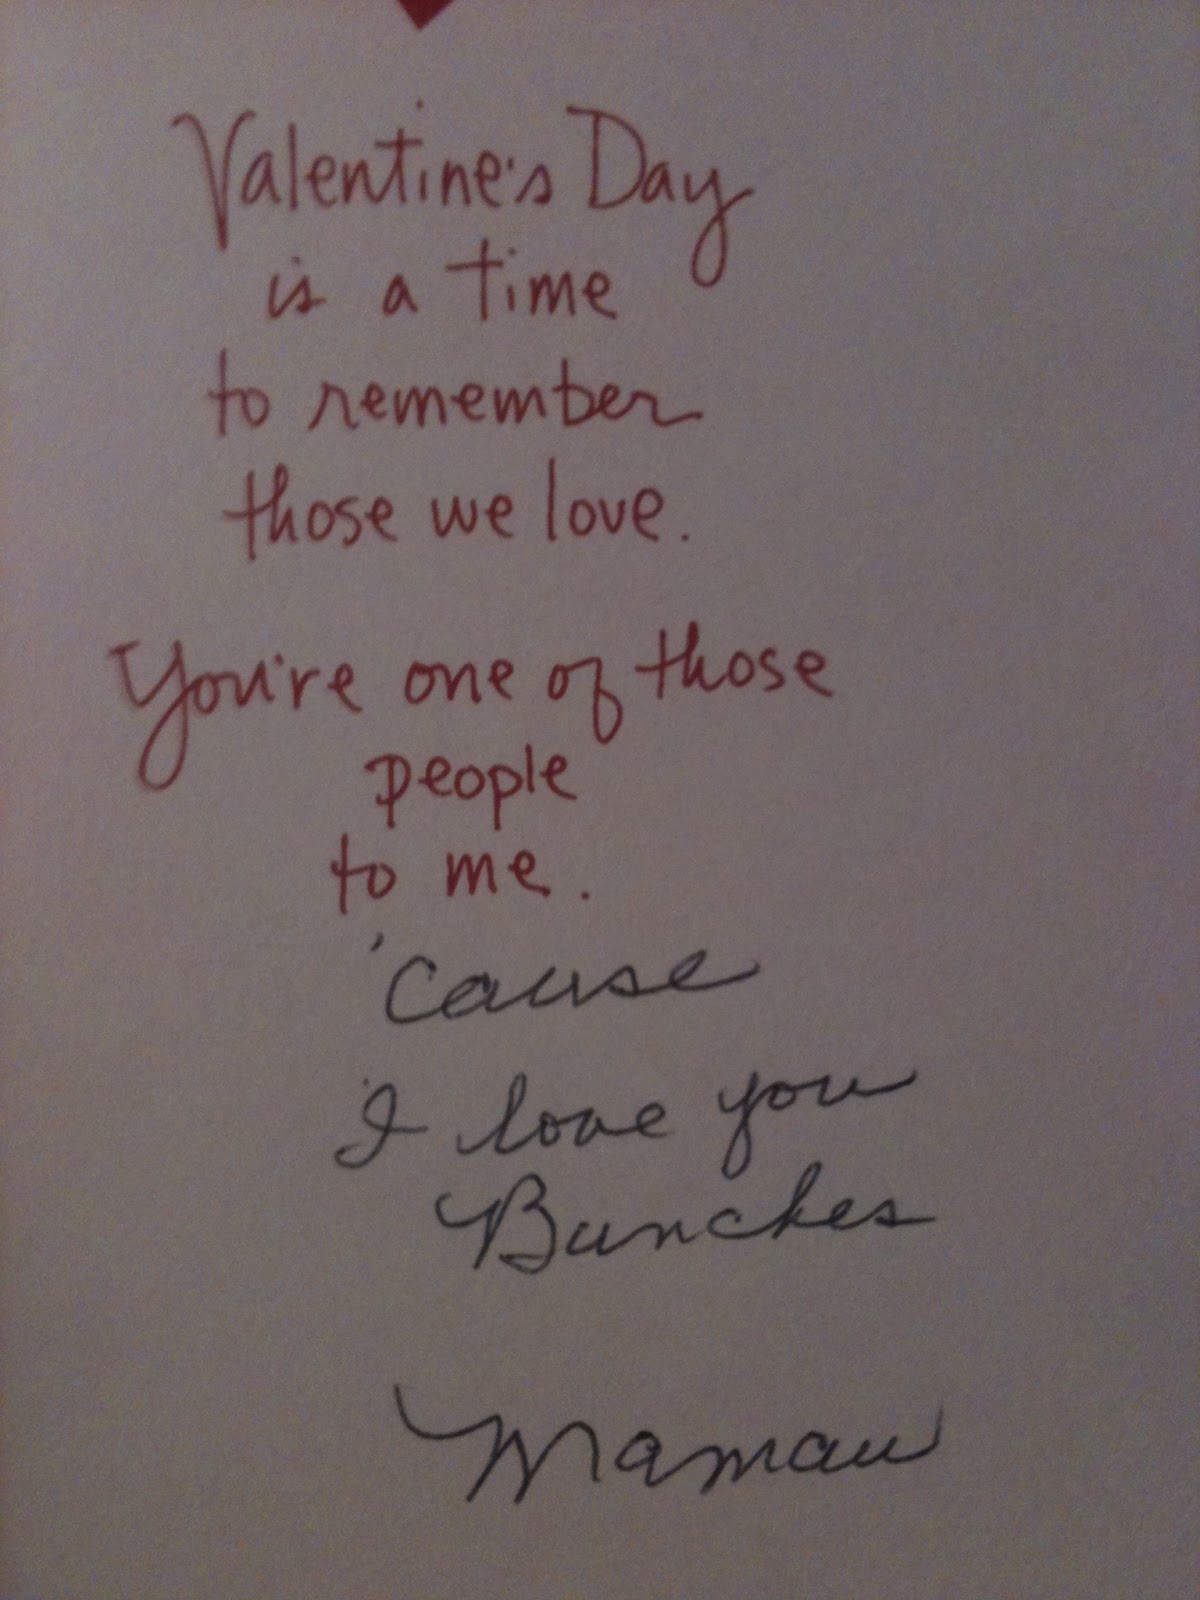 Valentine's Day
is a time
to remember
those we love.
You're one of those
people
to me.
'cause
I love you
Bunches
Mamaw